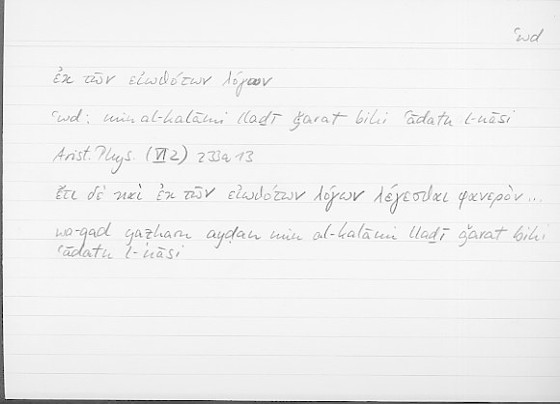 ʿwd
ἐκ τῶν εἰωθότων λόγων
ʿwd: min al-kalāmi lladī ǧarat bihi ʿādatu l-nāsi
Arist. Phys. (VI 2) 233a13
ἔτι δὲ καὶ ἐκ τῶν εἰωθότων λόγων λέγεσθαι φανερὸν...
wa-qad yaẓharu ayḍan min al-kalāmi llaḏī ǧarat bihi
ʿādatu l-nāsi